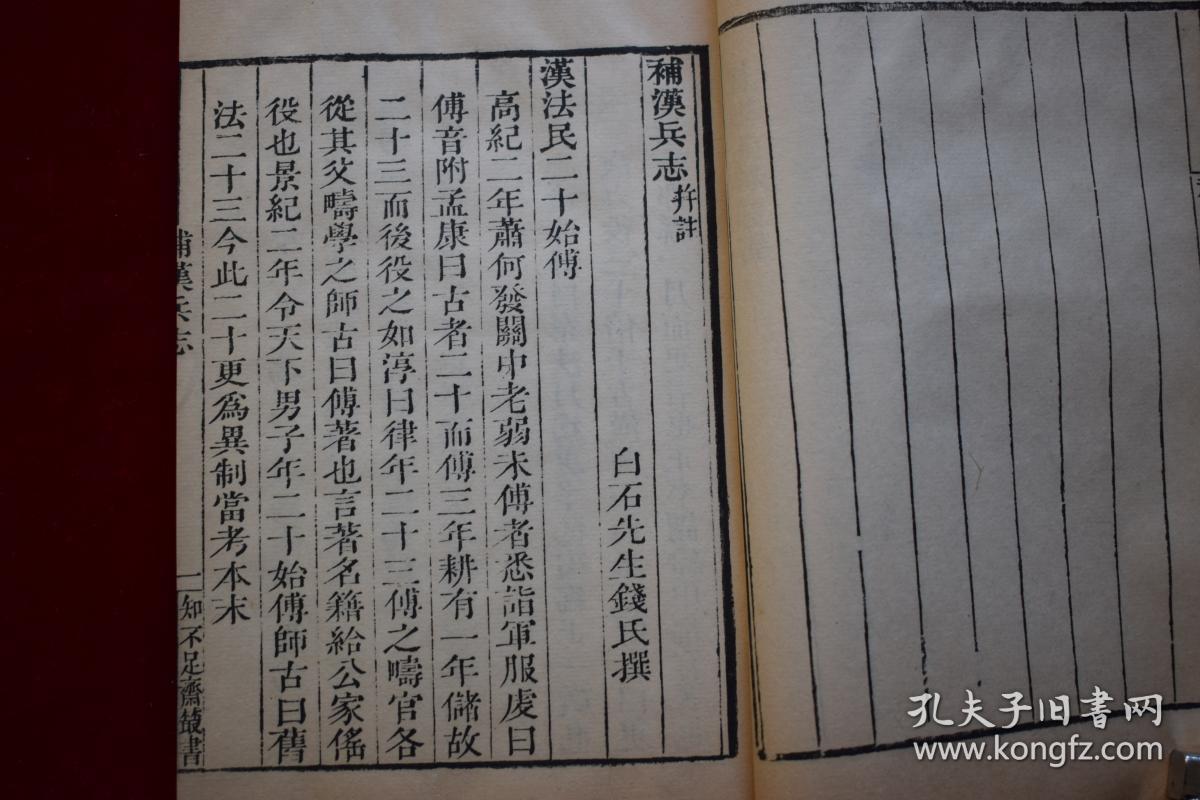 補漢兵志 并註
白石先生錢氏撰
漢法民二十始傅
高紀二年蕭何發關中老弱未傅者悉詣軍服虔曰
傅音附孟康曰古者二十而傅三年耕有一年儲故
二十三而後役之如淳曰律年二十三傅之疇官各
從其父疇學之師古曰傅著也言著名籍給公家徭
役也景紀二年令天下男子年二十始傅師古曰舊
法二十三今此二十更爲異制當考本末
補漢兵志
一
知不足齋叢書
孔夫子旧书网
www.kongfz.com